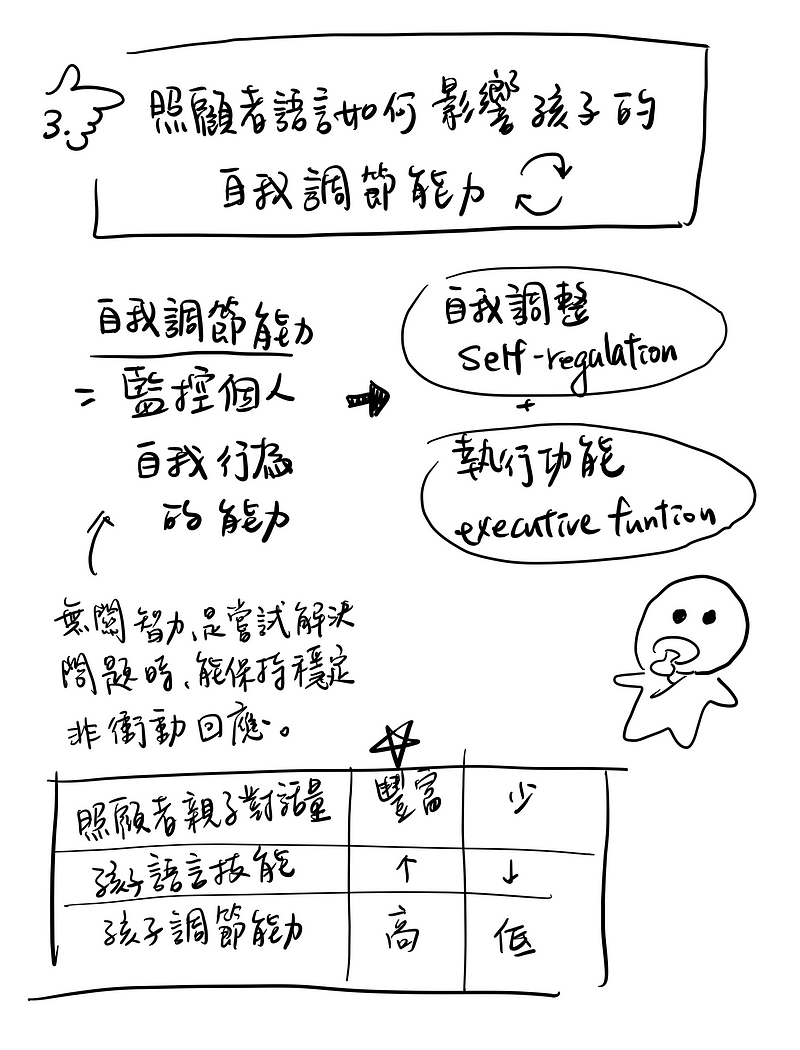 3.
照顧者語言如何影響孩子的
自我調節能力
自我調節能力
= 監控個人
自我行為
的能力
自我調整
self-regulation
+
執行功能
executive funtion
無關智力,是嘗試解決
問題時、能保持穩定
非衝動回應。
照顧者親子對話量 豐富 少
孩子語言技能 ↑ ↓
孩子調節能力 高 低